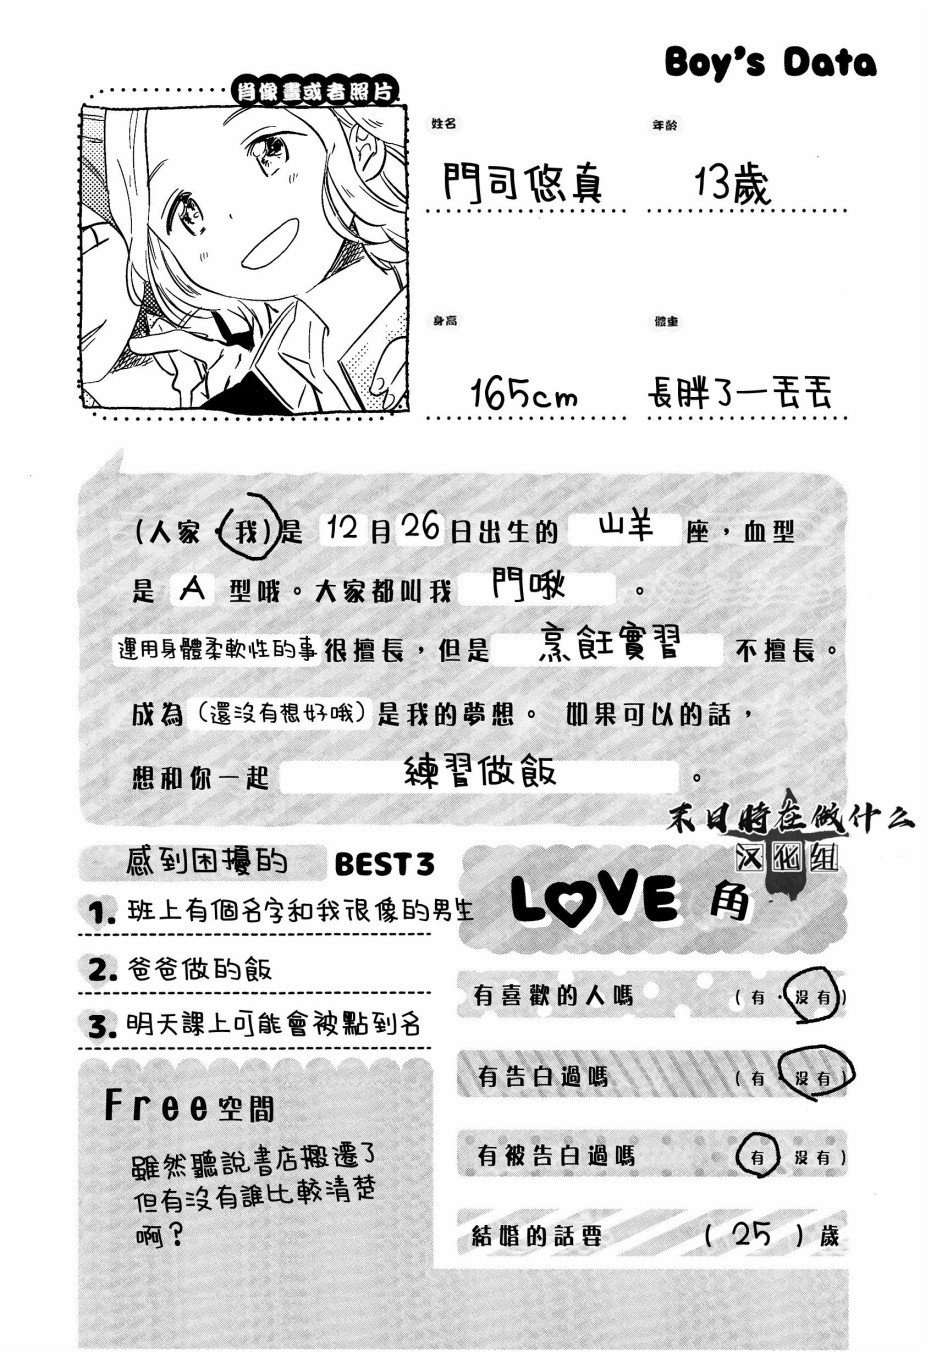 Boy's Data
肖像畫或者照片
姓名
年齡
門司悠真
13歲
身高
體重
165cm
長胖了一丟丟
(人家・我)是 12月26日出生的 山羊 座，血型
是 A 型哦。大家都叫我 門啾 。
運用身體柔軟性的事很擅長，但是 烹飪實習 不擅長。
成為（還沒有想好哦）是我的夢想。如果可以的話，
想和你一起 練習做飯 。
末日時在做什么
汉化组
感到困擾的 BEST3
1. 班上有個名字和我很像的男生
2. 爸爸做的飯
3. 明天課上可能會被點到名
LOVE 角
有喜歡的人嗎 (有・沒有)
有告白過嗎 (有・沒有)
有被告白過嗎 (有・沒有)
結婚的話要 (25)歲
Free空間
雖然聽說書店搬遷了
但有沒有誰比較清楚
啊？